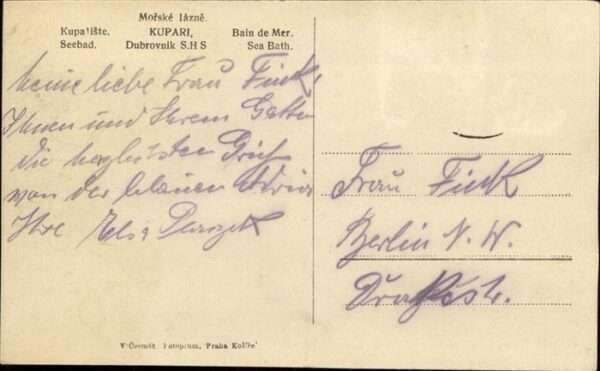 Mořské lázně.
Kupalište, KUPARI, Bain de Mer.
Seebad. Dubrovnik S.H S Sea Bath.
Meine liebe Frau Fink,
Ihnen und Ihrem Gatten
die herzlichsten Grüße
von der blauen Adria
Ihre Elsa
Frau Fink
Berlin N. W.
V. Fotoprum, Praha Košíře